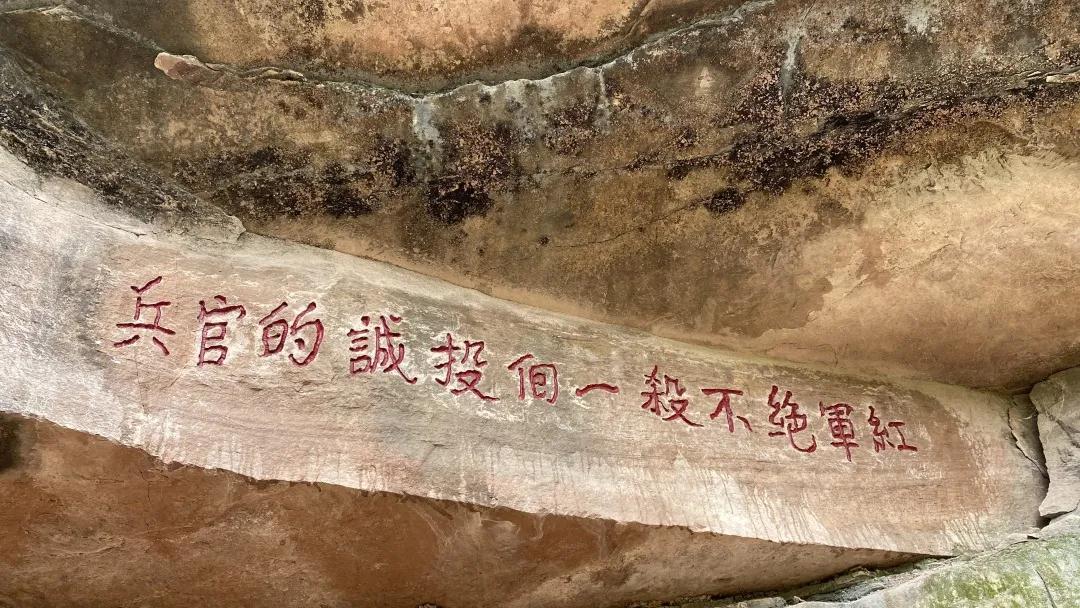 紅軍絶不殺一個投誠的官兵